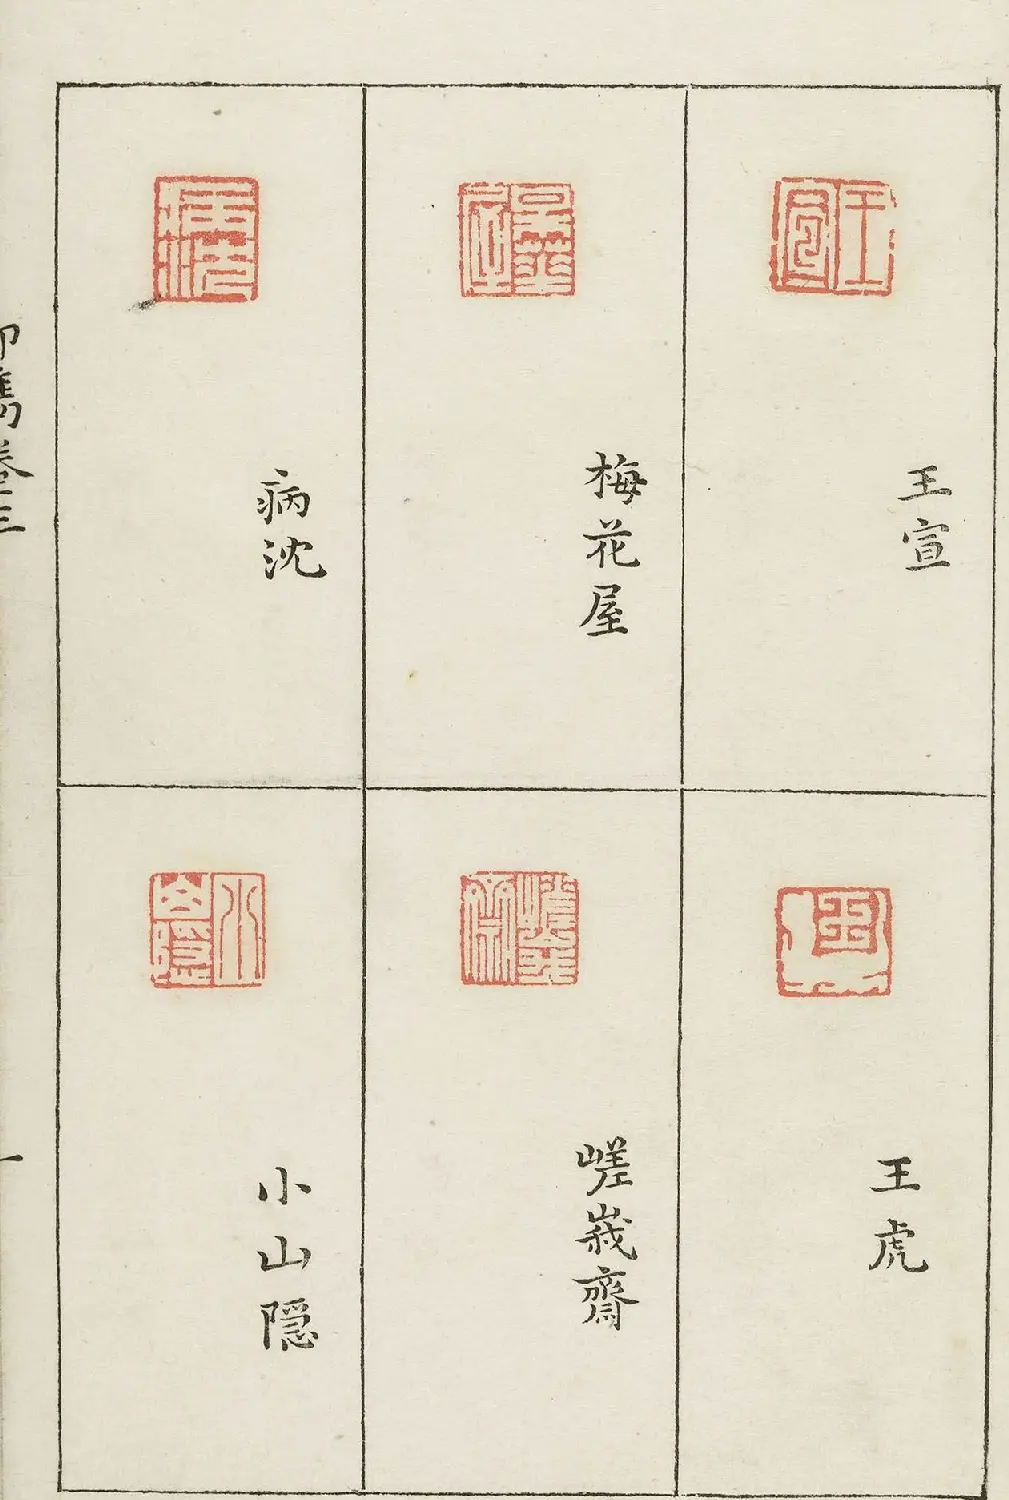 王宣
王虎
梅花屋
嵯峩齋
病沈
小山隠
卷三
一